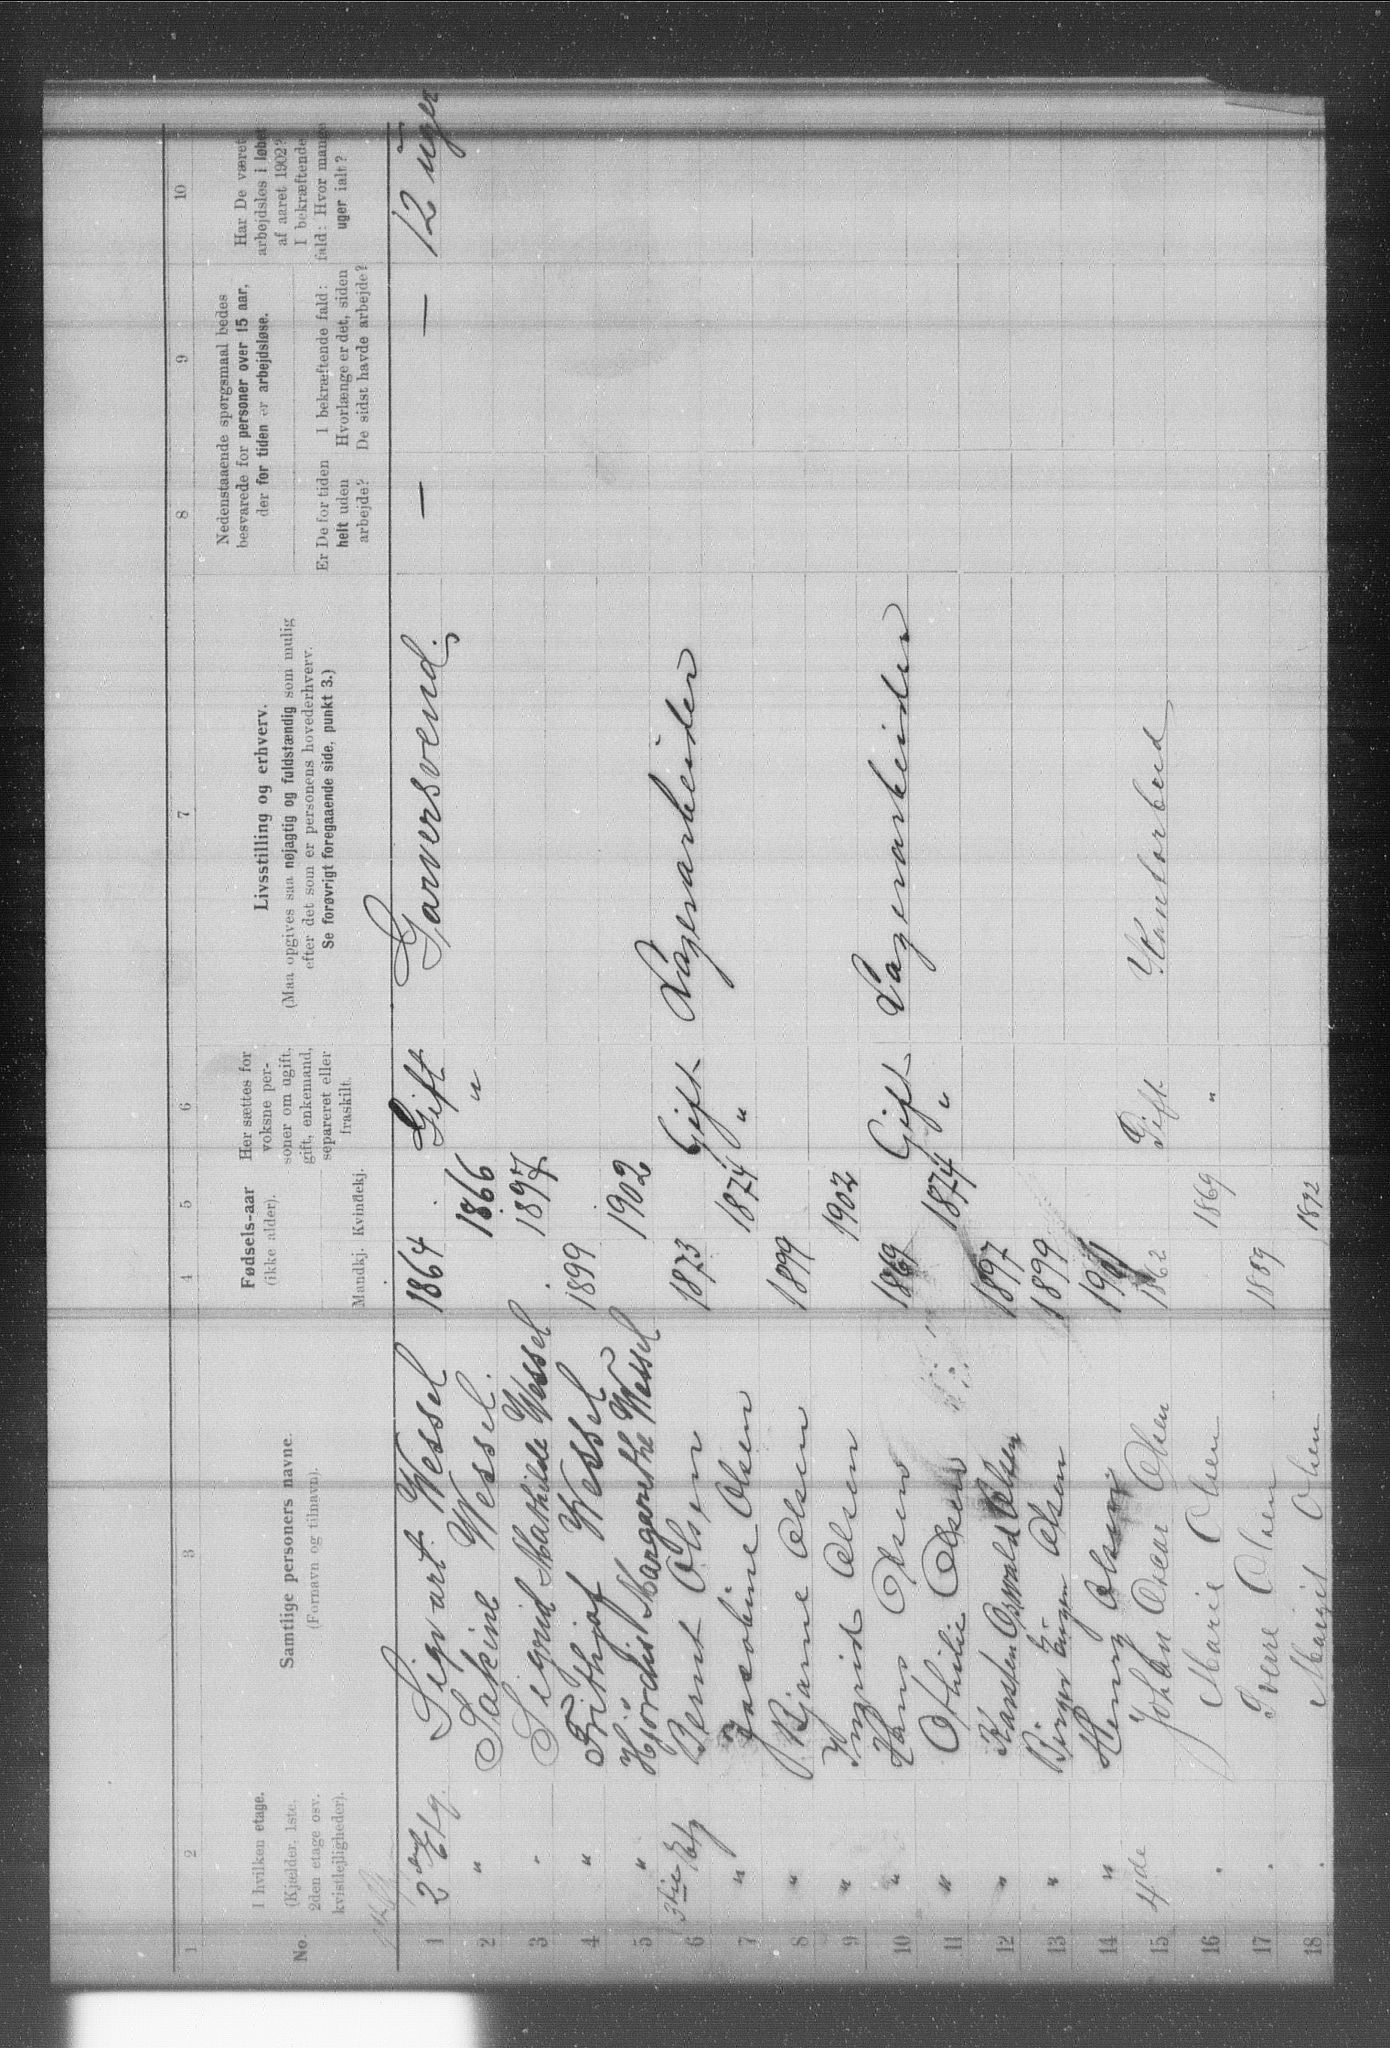 1 2 3 4 5 6 7 8 9 10
No.
I hvilken etage.
(Kjælder, 1ste,
2den etage osv.
kvistlejligheder).
Samtlige personers navne.
(Fornavn og tilnavn).
Fødsels-aar
(ikke alder).
Mandkj. Kvindekj.
Her sættes for
voksne per-
soner om ugift,
gift, enkemand,
separeret eller
fraskilt.
Livsstilling og erhverv.
(Maa opgives saa nøjagtig og fuldstændig som mulig
efter det som er personens hovederhverv.
Se forøvrigt foregaaende side, punkt 3.)
Nedenstaaende spørgsmaal bedes
besvarede for personer over 15 aar,
der for tiden er arbejdsløse.
Er De for tiden
helt uden
arbejde?
I bekræftende fald:
Hvorlænge er det, siden
De sidst havde arbejde?
Har De været
arbejdsløs i løbet
af aaret 1902?
I bekræftende
fald: Hvor mange
uger ialt?
1 2den Etg. Sigvart Wessel 1864 Gift Garversvend. — — 12 uger
2 " Sakine Wessel. 1866 "
3 " Sigrid Mathilde Wessel 1897
4 " Frithjof Wessel 1899
5 " Hjørdis Margarethe Wessel 1902
6 3die Etg Bernt Olsen 1873 Gift Lagerarbeider
7 " Jacobine Olsen 1874 "
8 " Bjarne Olsen 1899
9 " Ingrid Olsen 1902
10 " Hans Olsen 1869 Gift Lagerarbeider
11 " Othilie Olsen 1874 "
12 " Karsten Osvald Olsen 1897
13 " Birger Eugen Olsen 1899
14 " Henry Olsen 1901
15 4de Johan Oscar Olsen 1862 Gift Kontorbud
16 " Marie Olsen 1869 "
17 " Sverre Olsen 1889
18 " Margit Olsen 1892